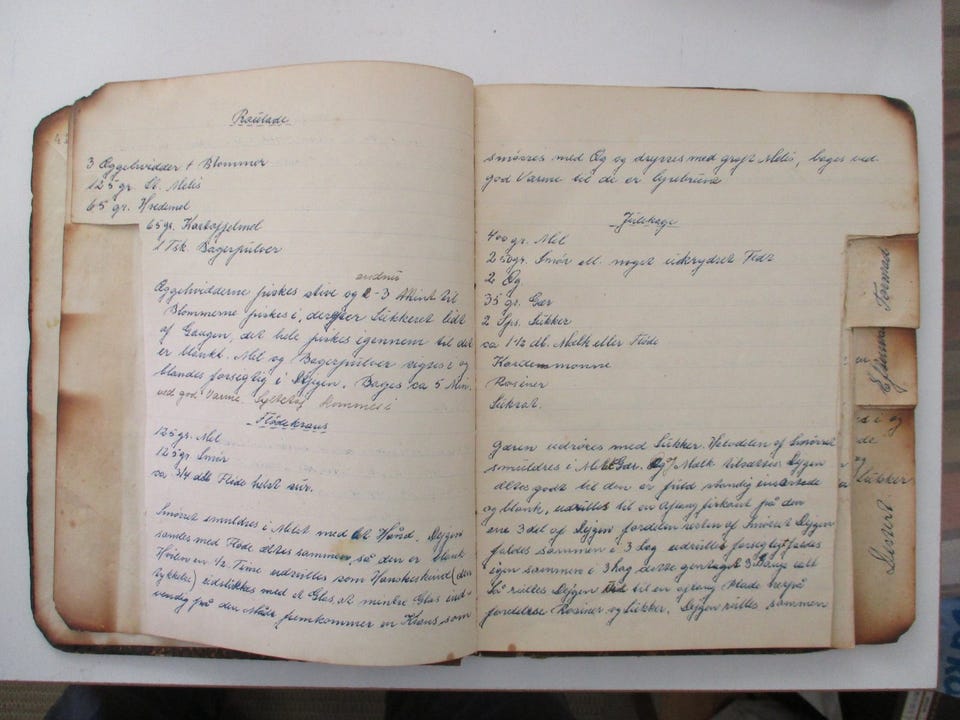 Roulade
3 Æggehvidder + Blommer
125 gr. St. Melis
65 gr. Hvedemel
65 gr. Kartoffelmel
1 Tsk. Bagerpulver
endnu
Æggehvidderne piskes stive og 2-3 Minut til
Blommerne piskes i, derefter Sukkeret lidt
af Gangen, det hele piskes igennem til det
er blankt. Mel og Bagerpulver sigtes i og
blandes forsegtig i Dejgen. Bages ca 5 Min.
ved god Varme. Syltetøj kommes i
Flødekrans
125 gr. Mel
125 gr. Smør
ca 3/4 dl Fløde helst sur.
Smørret smuldres i Melet med let Hånd. Dejgen
samles med Fløde æltes sammen, så den er blank
Hviler en 1/2 Time udrulles som Handskeskind (den
tykkelse) udstikkes med et Glas, et mindre Glas ind-
vendig på den Måde fremkommer en Krans, som
smøres med Æg og drysses med groft Melis, bages ved
god Varme til de er lysebrune
Julekage
400 gr. Mel
250 gr. Smør ell. noget udkrydset Fedt
2 Æg
35 gr. Gær
2 Sps. Sukker
ca 1-1/2 dl. Mælk eller Fløde
Kardemomme
Rosiner
Sukrat.
Gæren udrøres med Sukker. Halvdelen af Smørret
smuldres i Melet Gær. Æg og Mælk tilsættes. Dejgen
æltes godt til den er fuldstændig
og blank, udrulles til en aflang firkant på den
ene 3 del af Dejgen fordeles resten af Smørret Dejgen
foldes sammen i 3 Lag udrulles forsegtigt foldes
igen sammen i 3 Lag desse gentaget 3 Gange ialt
Så rulles Dejgen til en aflang Plade herpå
fordeles Rosiner og Sukker. Dejgen rulles sammen
Formad
Dessert
Sukker